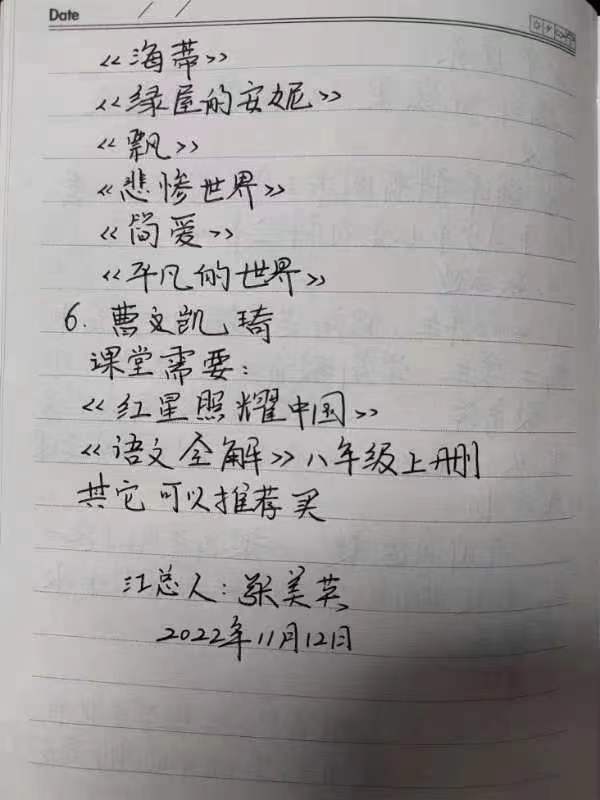 Date / /
《海蒂》
《绿屋的安妮》
《飘》
《悲惨世界》
《简爱》
《平凡的世界》
6. 曹文凯琦
课堂需要:
《红星照耀中国》
《语文全解》八年级上册
其它可以推荐买
汇总人: 张美英
2022年11月12日